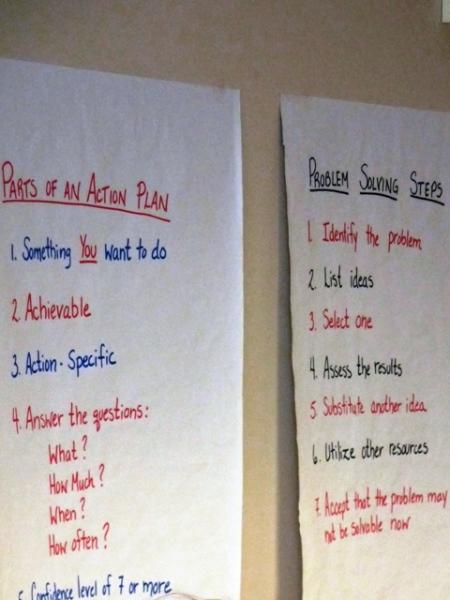 PARTS OF AN ACTION PLAN
1. Something You want to do
2. Achievable
3. Action - Specific
4. Answer the questions:
What?
How Much?
When?
How often?
5. Confidence level of 7 or more
PROBLEM SOLVING STEPS
1. Identify the problem
2. List ideas
3. Select one
4. Assess the results
5. Substitute another idea
6. Utilize other resources
7. Accept that the problem may
not be solvable now